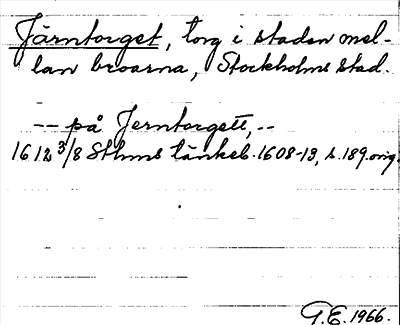 Järntorget, torg i staden mel-
lan broarna, Stockholms stad.
-- på Jerntorgett, --
1612 3/8 Sthms tänkeb. 1608-13, s. 189. orig.
G.E. 1966.